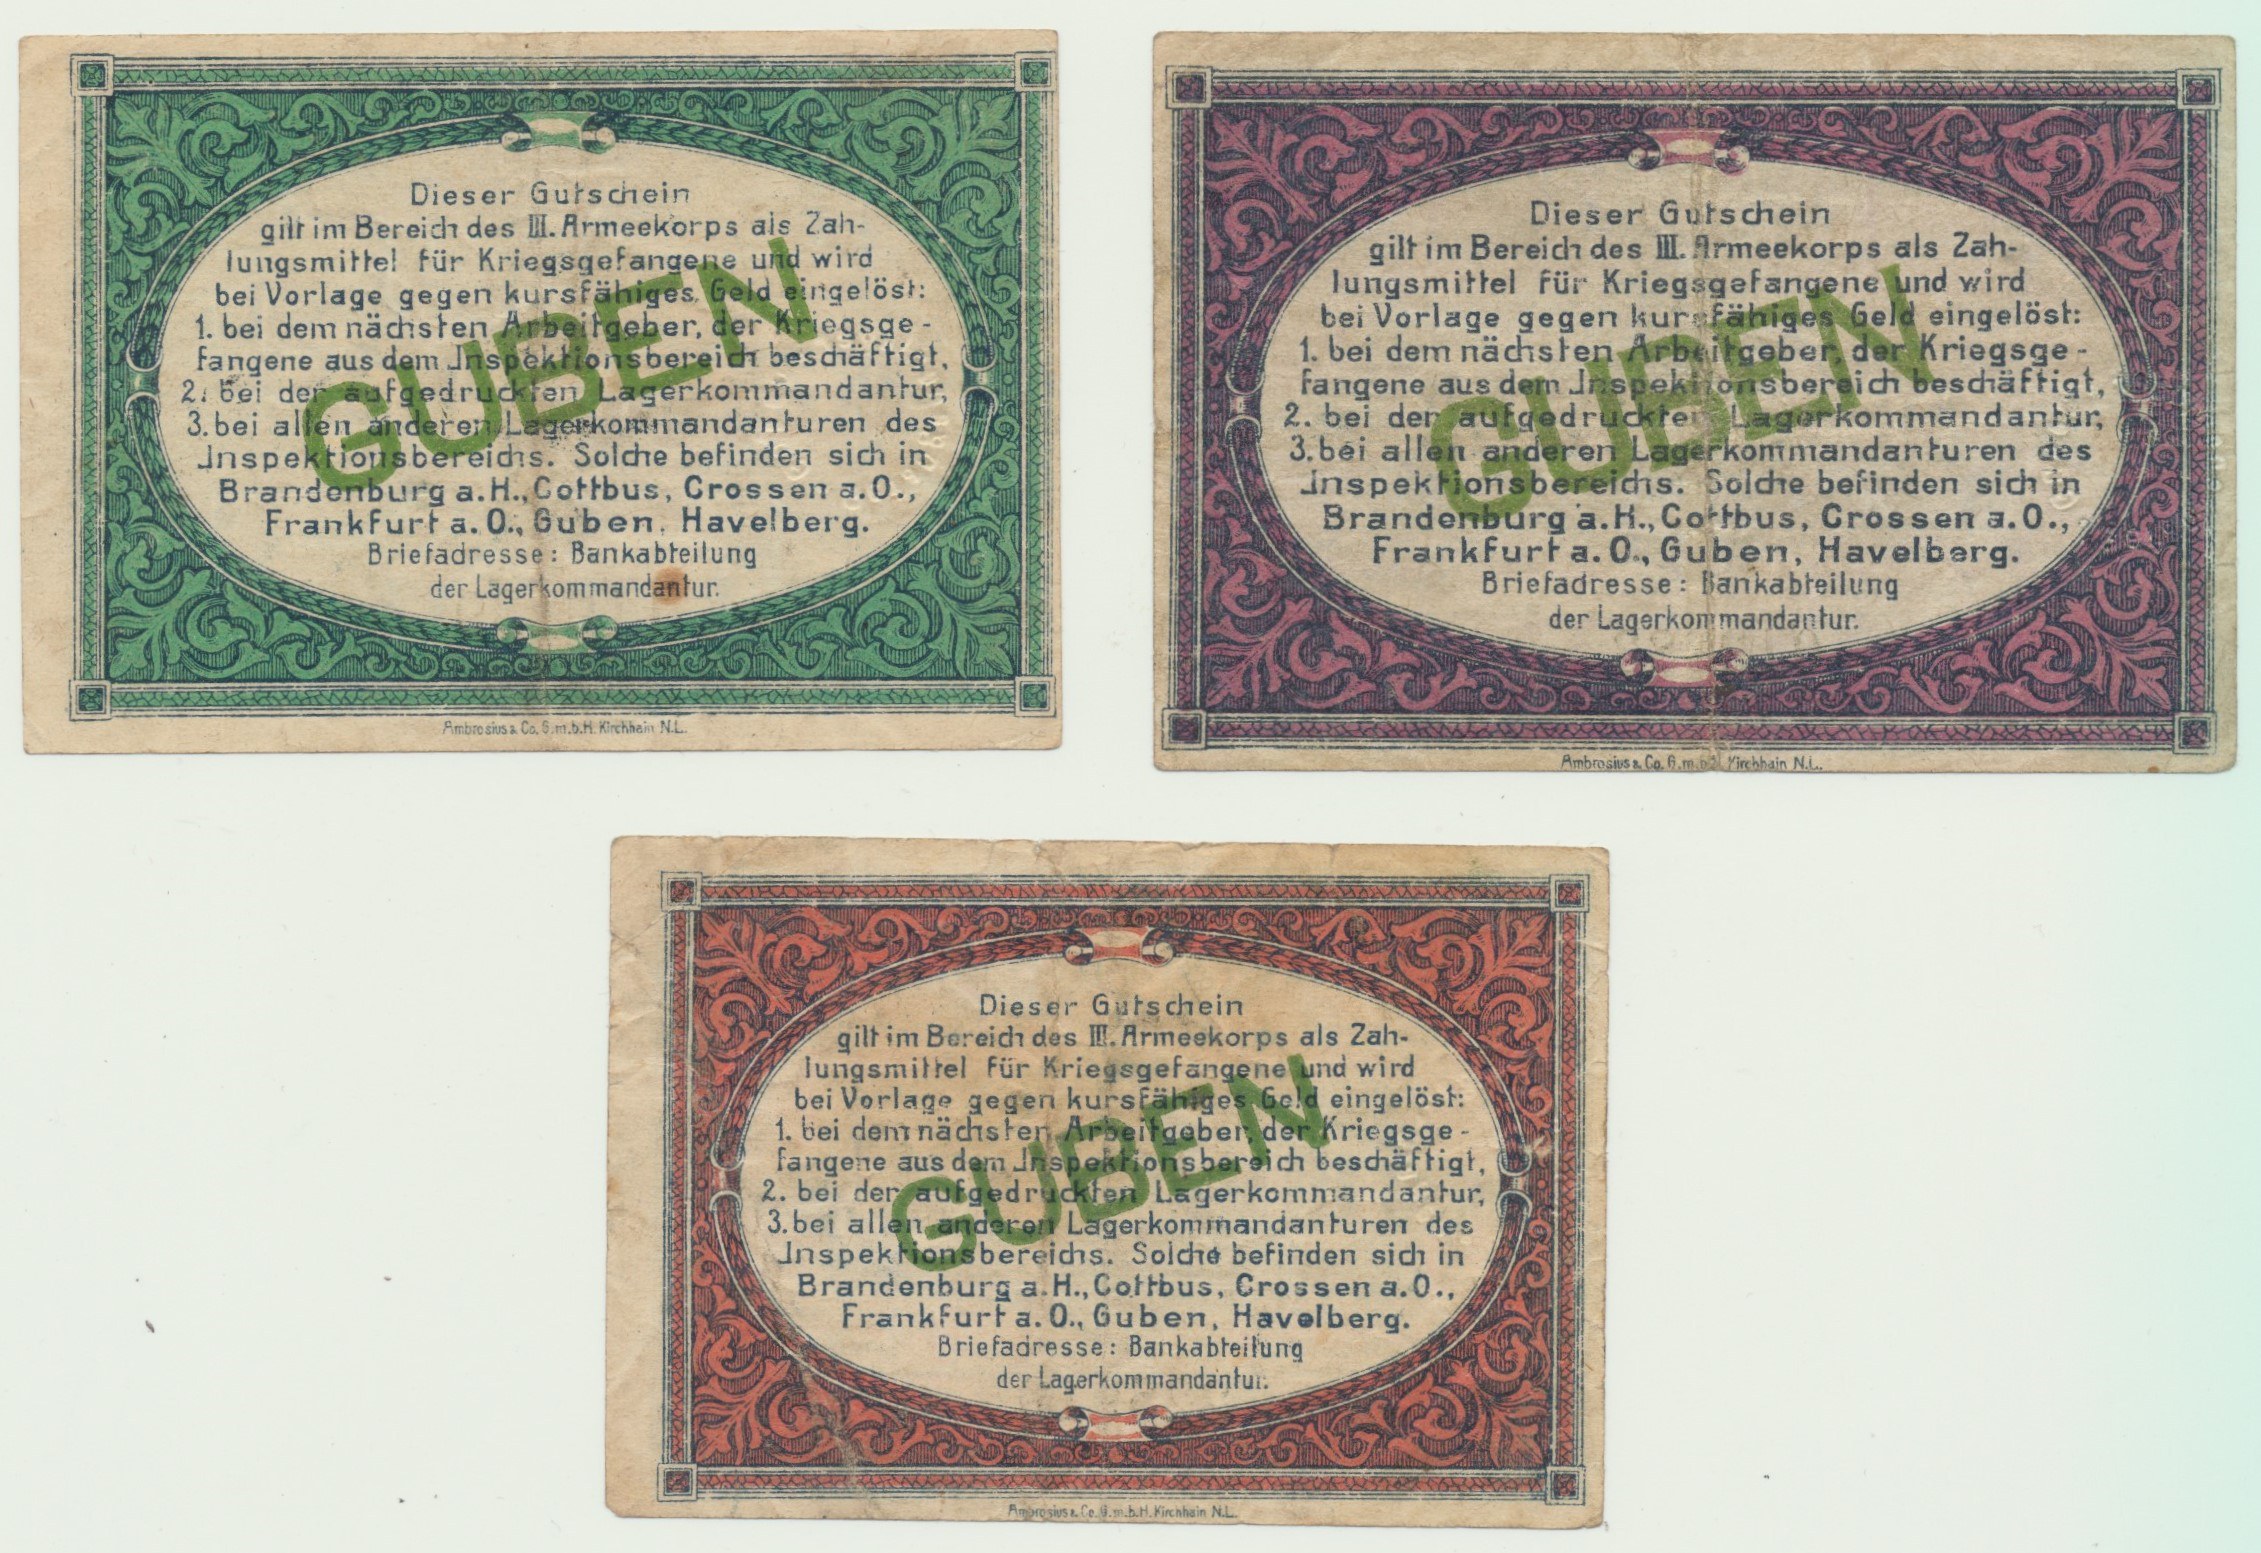 Dieser Gutschein
gilt im Bereich des III. Armeekorps als Zah-
lungsmittel für Kriegsgefangene und wird
bei Vorlage gegen kursfähiges Geld eingelöst:
1. bei dem nächsten Arbeitgeber, der Kriegsge-
fangene aus dem Jnspektionsbereich beschäftigt,
2. bei der aufgedruckten Lagerkommandantur,
3. bei allen anderen Lagerkommandanturen des
Jnspektionsbereichs. Solche befinden sich in
Brandenburg a. H., Cottbus, Crossen a. O.,
Frankfurt a. O., Guben, Havelberg.
Briefadresse: Bankabteilung
der Lagerkommandantur.
GUBEN
Ambrosius & Co. G.m.b.H. Kirchhain N.L.
Dieser Gutschein
gilt im Bereich des III. Armeekorps als Zah-
lungsmittel für Kriegsgefangene und wird
bei Vorlage gegen kursfähiges Geld eingelöst:
1. bei dem nächsten Arbeitgeber, der Kriegsge-
fangene aus dem Jnspektionsbereich beschäftigt,
2. bei der aufgedruckten Lagerkommandantur,
3. bei allen anderen Lagerkommandanturen des
Jnspektionsbereichs. Solche befinden sich in
Brandenburg a. H., Cottbus, Crossen a. O.,
Frankfurt a. O., Guben, Havelberg.
Briefadresse: Bankabteilung
der Lagerkommandantur.
GUBEN
Ambrosius & Co. G.m.b.H. Kirchhain N.L.
Dieser Gutschein
gilt im Bereich des III. Armeekorps als Zah-
lungsmittel für Kriegsgefangene und wird
bei Vorlage gegen kursfähiges Geld eingelöst:
1. bei dem nächsten Arbeitgeber, der Kriegsge-
fangene aus dem Jnspektionsbereich beschäftigt,
2. bei der aufgedruckten Lagerkommandantur,
3. bei allen anderen Lagerkommandanturen des
Jnspektionsbereichs. Solche befinden sich in
Brandenburg a. H., Cottbus, Crossen a. O.,
Frankfurt a. O., Guben, Havelberg.
Briefadresse: Bankabteilung
der Lagerkommandantur.
GUBEN
Ambrosius & Co. G.m.b.H. Kirchhain N.L.